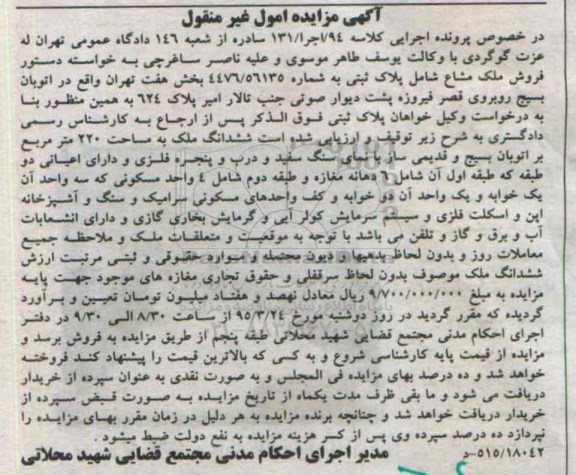 آگهی مزایده اموال غیر منقول
در خصوص پرونده اجرایی کلاسه ۹۴/اجرا/۱۳۱ صادره از شعبه ۱۴۶ دادگاه عمومی تهران له
عزت گوگردی با وکالت یوسف طاهر موسوی و علیه ناصر ساغرچی به خواسته دستور
فروش ملک مشاع شامل پلاک ثبتی به شماره ۴۴۷۶/۵۶۱۳۵ بخش هفت تهران واقع در اتوبان
بسیج روبروی قصر فیروزه پشت دیوار صوتی جنب تالار امیر پلاک ۶۲۴ به همین منظور بنا
به درخواست وکیل خواهان پلاک ثبتی فوق الذکر پس از ارجاع به کارشناس رسمی
دادگستری به شرح زیر توقیف و ارزیابی شده است ششدانگ ملک به مساحت ۲۲۰ متر مربع
بر اتوبان بسیج و قدیمی ساز با نمای سنگ سفید و درب و پنجره فلزی و دارای اعیانی دو
طبقه که طبقه اول آن شامل ۶ دهانه مغازه و طبقه دوم شامل ۴ واحد مسکونی که سه واحد آن
یک خوابه و یک واحد آن دو خوابه و کف واحدهای مسکونی سرامیک و سنگ و آشپزخانه
اپن و اسکلت فلزی و سیستم سرمایش کولر آبی و گرمایش بخاری گازی و دارای انشعابات
آب و برق و گاز و تلفن می باشد با توجه به موقعیت و متعلقات ملک و ملاحظه جمیع
معاملات روز و بدون لحاظ بدهیها و دیون محتمله و موارد حقوقی و ثبتی مرتبت ارزش
ششدانگ ملک موصوف بدون لحاظ سرقفلی و حقوق تجاری مغازه های موجود جهت پایه
مزایده به مبلغ ۹/۷۰۰/۰۰۰/۰۰۰ ریال معادل نهصد و هفتاد میلیون تومان تعیین و برآورد
گردیده که مقرر گردید در روز دوشنبه مورخ ۹۵/۳/۲۴ از ساعت ۸/۳۰ الی ۹/۳۰ در دفتر
اجرای احکام مدنی مجتمع قضایی شهید محلاتی طبقه پنجم از طریق مزایده به فروش برسد و
مزایده از قیمت پایه کارشناسی شروع و به کسی که بالاترین قیمت را پیشنهاد کند فروخته
خواهد شد و ده درصد بهای مزایده فی المجلس و به صورت نقدی به عنوان سپرده از خریدار
دریافت می شود و ما بقی ظرف مدت یکماه از تاریخ مزایده به صورت قبض سپرده از
خریدار دریافت خواهد شد و چنانچه برنده مزایده به هر دلیل در زمان مقرر بهای مزایده را
نپردازد ده درصد سپرده وی پس از کسر هزینه مزایده به نفع دولت ضبط میشود .
۵۱۵/۱۸۰۴۲-د مدیر اجرای احکام مدنی مجتمع قضایی شهید محلاتی